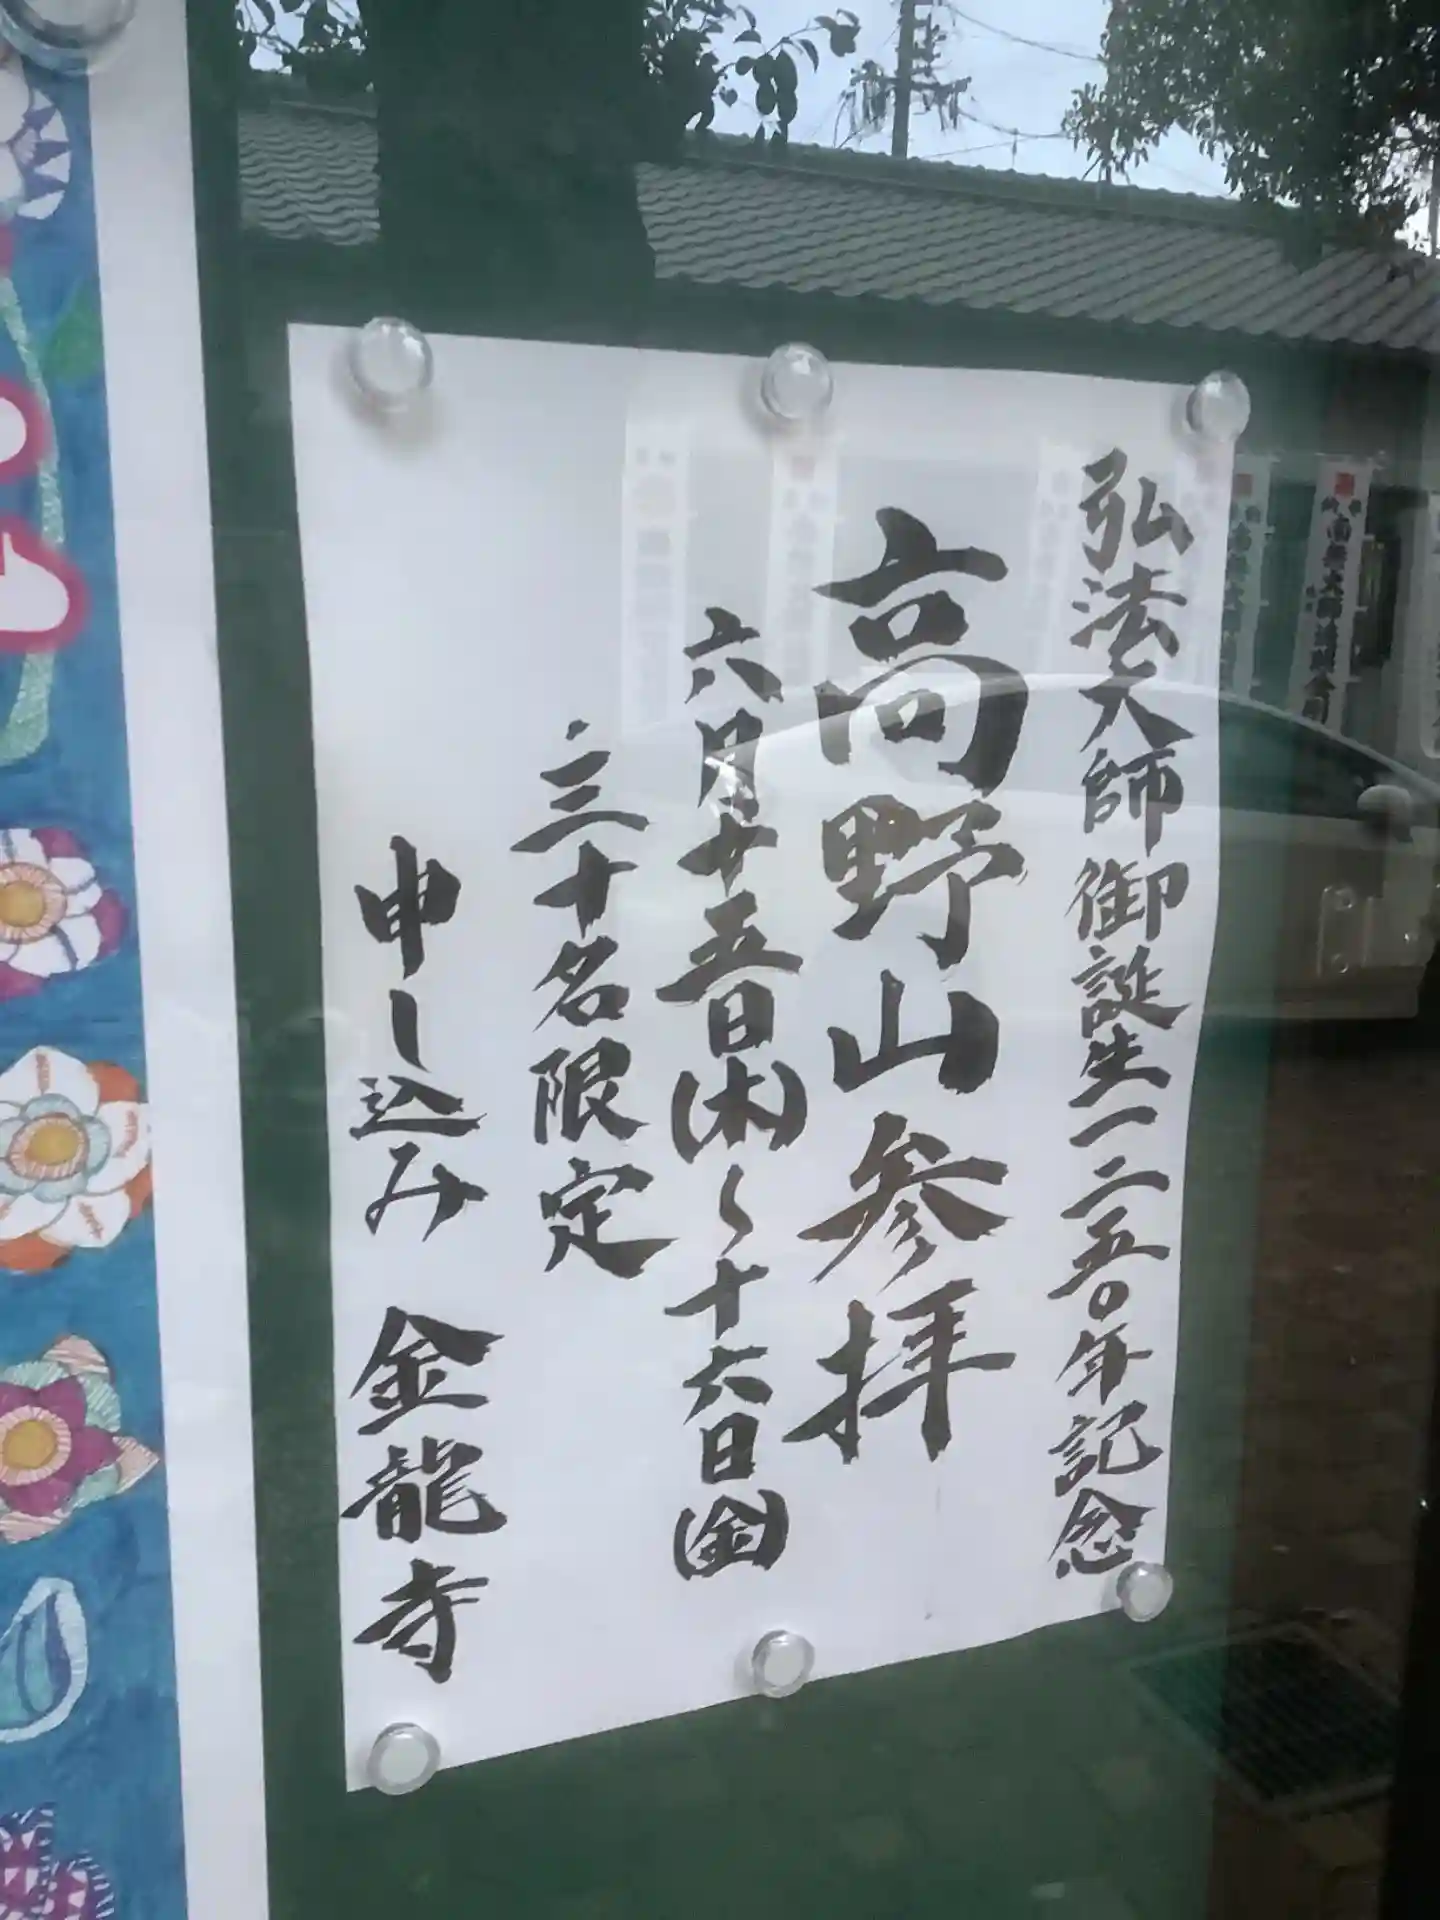 弘法大師御誕生一二五〇年記念
高野山参拝
六月十五日(木)〜十六日(金)
三十名限定
申し込み 金龍寺